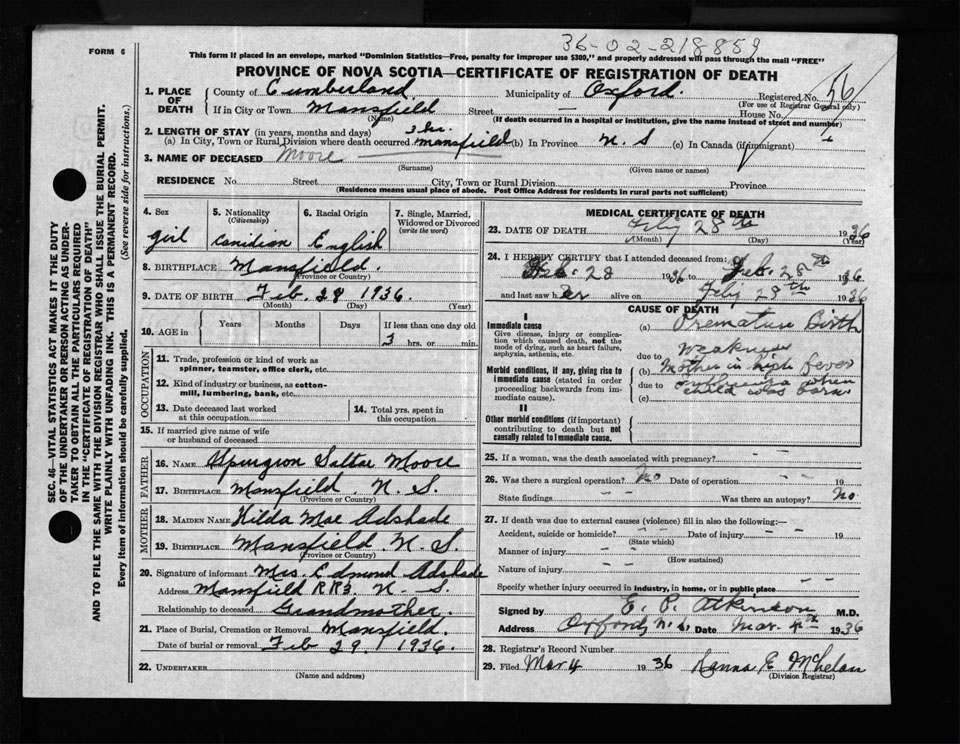 36-02-218859
FORM 6
This form if placed in an envelope, marked "Dominion Statistics—Free, penalty for improper use $300," and properly addressed will pass through the mail "FREE"
PROVINCE OF NOVA SCOTIA—CERTIFICATE OF REGISTRATION OF DEATH
1. PLACE OF DEATH County of Cumberland Municipality of Oxford. Registered No. 56
(For use of Registrar General only)
If in City or Town Mansfield Street — House No.
(Name) (If death occurred in a hospital or institution, give the name instead of street and number)
2. LENGTH OF STAY (in years, months and days) 3 hrs.
(a) In City, Town or Rural Division where death occurred Mansfield (b) In Province N. S (c) In Canada (if immigrant)
3. NAME OF DECEASED Moore
(Surname) (Given name or names)
RESIDENCE No. Street City, Town or Rural Division Province
(Residence means usual place of abode. Post Office Address for residents in rural parts not sufficient)
4. Sex 5. Nationality (Citizenship) 6. Racial Origin 7. Single, Married, Widowed or Divorced (write the word)
girl Canidian English
8. BIRTHPLACE Mansfield.
(Province or Country)
9. DATE OF BIRTH Feb. 28 1936.
(Month) (Day) (Year)
10. AGE in Years Months Days If less than one day old
3 hrs. or min.
OCCUPATION
11. Trade, profession or kind of work as spinner, teamster, office clerk, etc.
12. Kind of industry or business, as cotton-mill, lumbering, bank, etc.
13. Date deceased last worked at this occupation
14. Total yrs. spent in this occupation
15. If married give name of wife or husband of deceased
FATHER
16. NAME Spurgeon Salter Moore
17. BIRTHPLACE Mansfield. N. S.
(Province or Country)
MOTHER
18. MAIDEN NAME Hilda Mae Adshade
19. BIRTHPLACE Mansfield. N. S.
(Province or Country)
20. Signature of informant Mrs. Edmund Adshade
Address Mansfield RR3. N. S.
Relationship to deceased Grandmother.
21. Place of Burial, Cremation or Removal Mansfield.
Date of burial or removal Feb 29. 1936.
22. UNDERTAKER
(Name and address)
MEDICAL CERTIFICATE OF DEATH
23. DATE OF DEATH 28th 1936
(Month) (Day) (Year)
24. I HEREBY CERTIFY that I attended deceased from:
Feb. 28 1936 to Feb. 28th 1936
and last saw her alive on 28th 1936
CAUSE OF DEATH
I
Immediate cause
Give disease, injury or complication which caused death, not the mode of dying, such as heart failure, asphyxia, asthenia, etc.
(a) Premature Birth
Weakness
due to
(b) Mother in high fever
due to when
(c) child was born
Morbid conditions, if any, giving rise to immediate cause (stated in order proceeding backwards from immediate cause).
II
Other morbid conditions (if important) contributing to death but not causally related to immediate cause.
25. If a woman, was the death associated with pregnancy? - -
26. Was there a surgical operation? No Date of operation - - 19
State findings - - Was there an autopsy? No
27. If death was due to external causes (violence) fill in also the following:—
Accident, suicide or homicide? - - Date of injury - 19
(State which)
Manner of injury - -
(How sustained)
Nature of injury - -
Specify whether injury occurred in industry, in home, or in public place
Signed by E. P. Atkinson M.D.
Address Oxford, N.S. Date Mar. 4th 1936
28. Registrar's Record Number
29. Filed Mar 4 1936
(Division Registrar)
SEC. 46—VITAL STATISTICS ACT MAKES IT THE DUTY
OF THE UNDERTAKER OR PERSON ACTING AS UNDER-
TAKER TO OBTAIN ALL THE PARTICULARS REQUIRED
IN THE "CERTIFICATE OF REGISTRATION OF DEATH"
AND TO FILE THE SAME WITH THE DIVISION REGISTRAR WHO SHALL ISSUE THE BURIAL PERMIT.
WRITE PLAINLY WITH UNFADING INK. THIS IS A PERMANENT RECORD.
Every item of information should be carefully supplied. (See reverse side for instructions.)